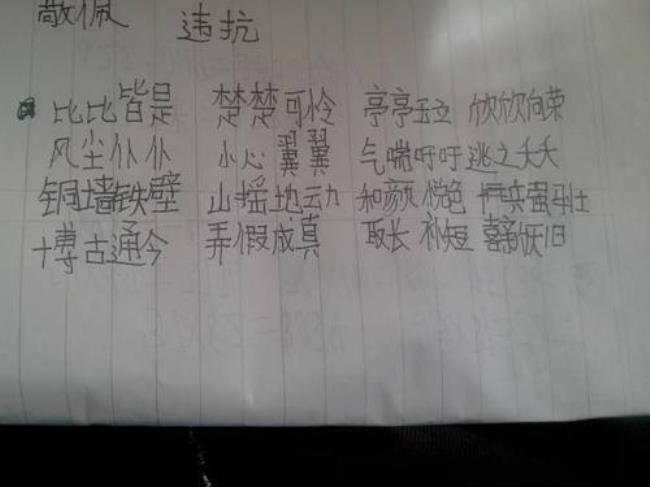 敬佩 违抗
比比皆是 楚楚可怜 亭亭玉立 欣欣向荣
风尘仆仆 小心翼翼 气喘吁吁 逃之夭夭
铜墙铁壁 山摇地动 和颜悦色
博古通今 弄假成真 取长补短 喜新厌旧